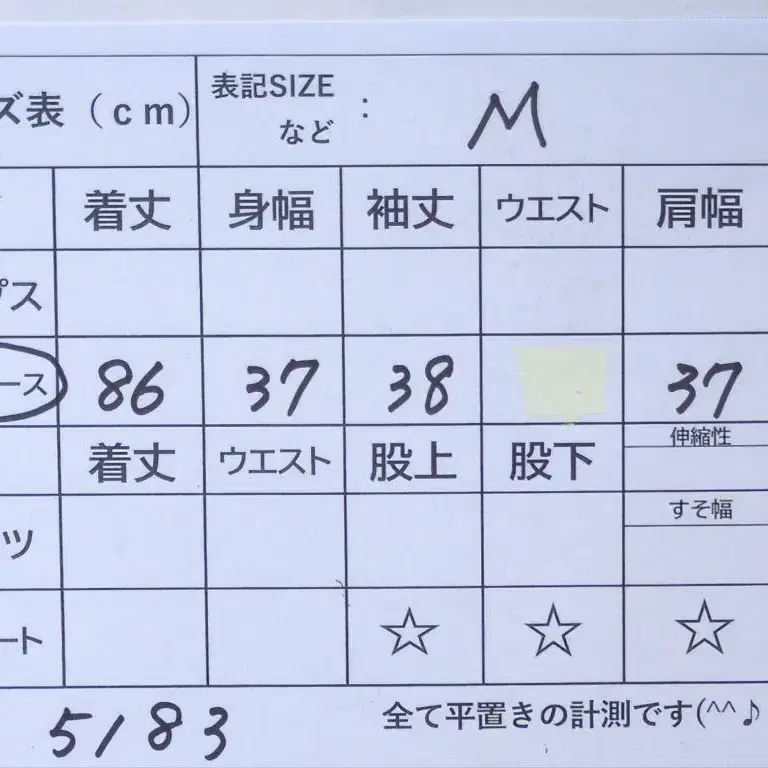 ズ表（cm） 表記SIZE など : M
着丈 身幅 袖丈 ウエスト 肩幅
プス
ース 86 37 38 37
着丈 ウエスト 股上 股下 伸縮性
すそ幅
ツ
ート ☆ ☆ ☆
5183 全て平置きの計測です(^^♪